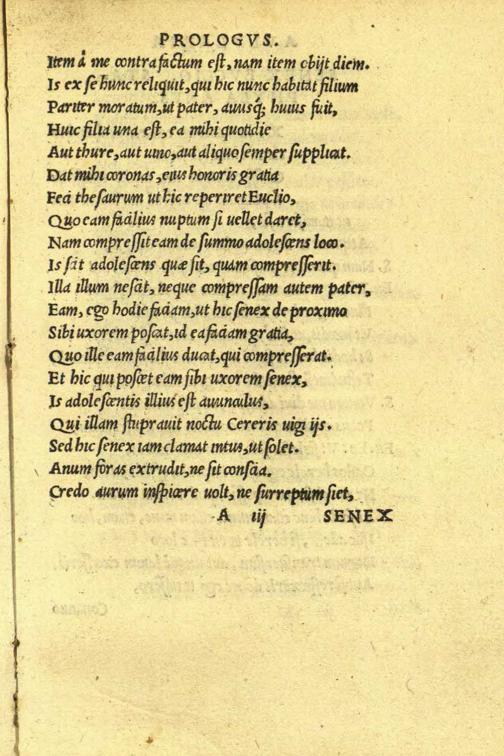 PROLOGVS.
Item á me contra factum est, nam item obijt diem.
Is ex se hunc reliquit, qui hic nunc habitat filium
Pariter moratum, ut pater, auusq; huius fuit,
Huic filia una est, ea mihi quotidie
Aut thure, aut uino, aut aliquo semper supplicat.
Dat mihi coronas, eius honoris gratia
Feci thesaurum ut hic reperiret Euclio,
Quo eam facilius nuptum si uellet daret,
Nam compressit eam de summo adolescens loco.
Is scit adolescens quæ sit, quam compresserit.
Illa illum nescit, neque compressam autem pater,
Eam, ego hodie faciam, ut hic senex de proximo
Sibi uxorem poscat, id ea faciam gratia,
Quo ille eam facilius ducat, qui compresserat.
Et hic qui poscet eam sibi uxorem senex,
Is adolescentis illius est auunculus,
Qui illam stuprauit noctu Cereris uigi ijs.
Sed hic senex iam clamat intus, ut solet.
Anum foras extrudit, ne sit conscia.
Credo aurum inspicere uolt, ne surreptum siet,
A iij SENEX